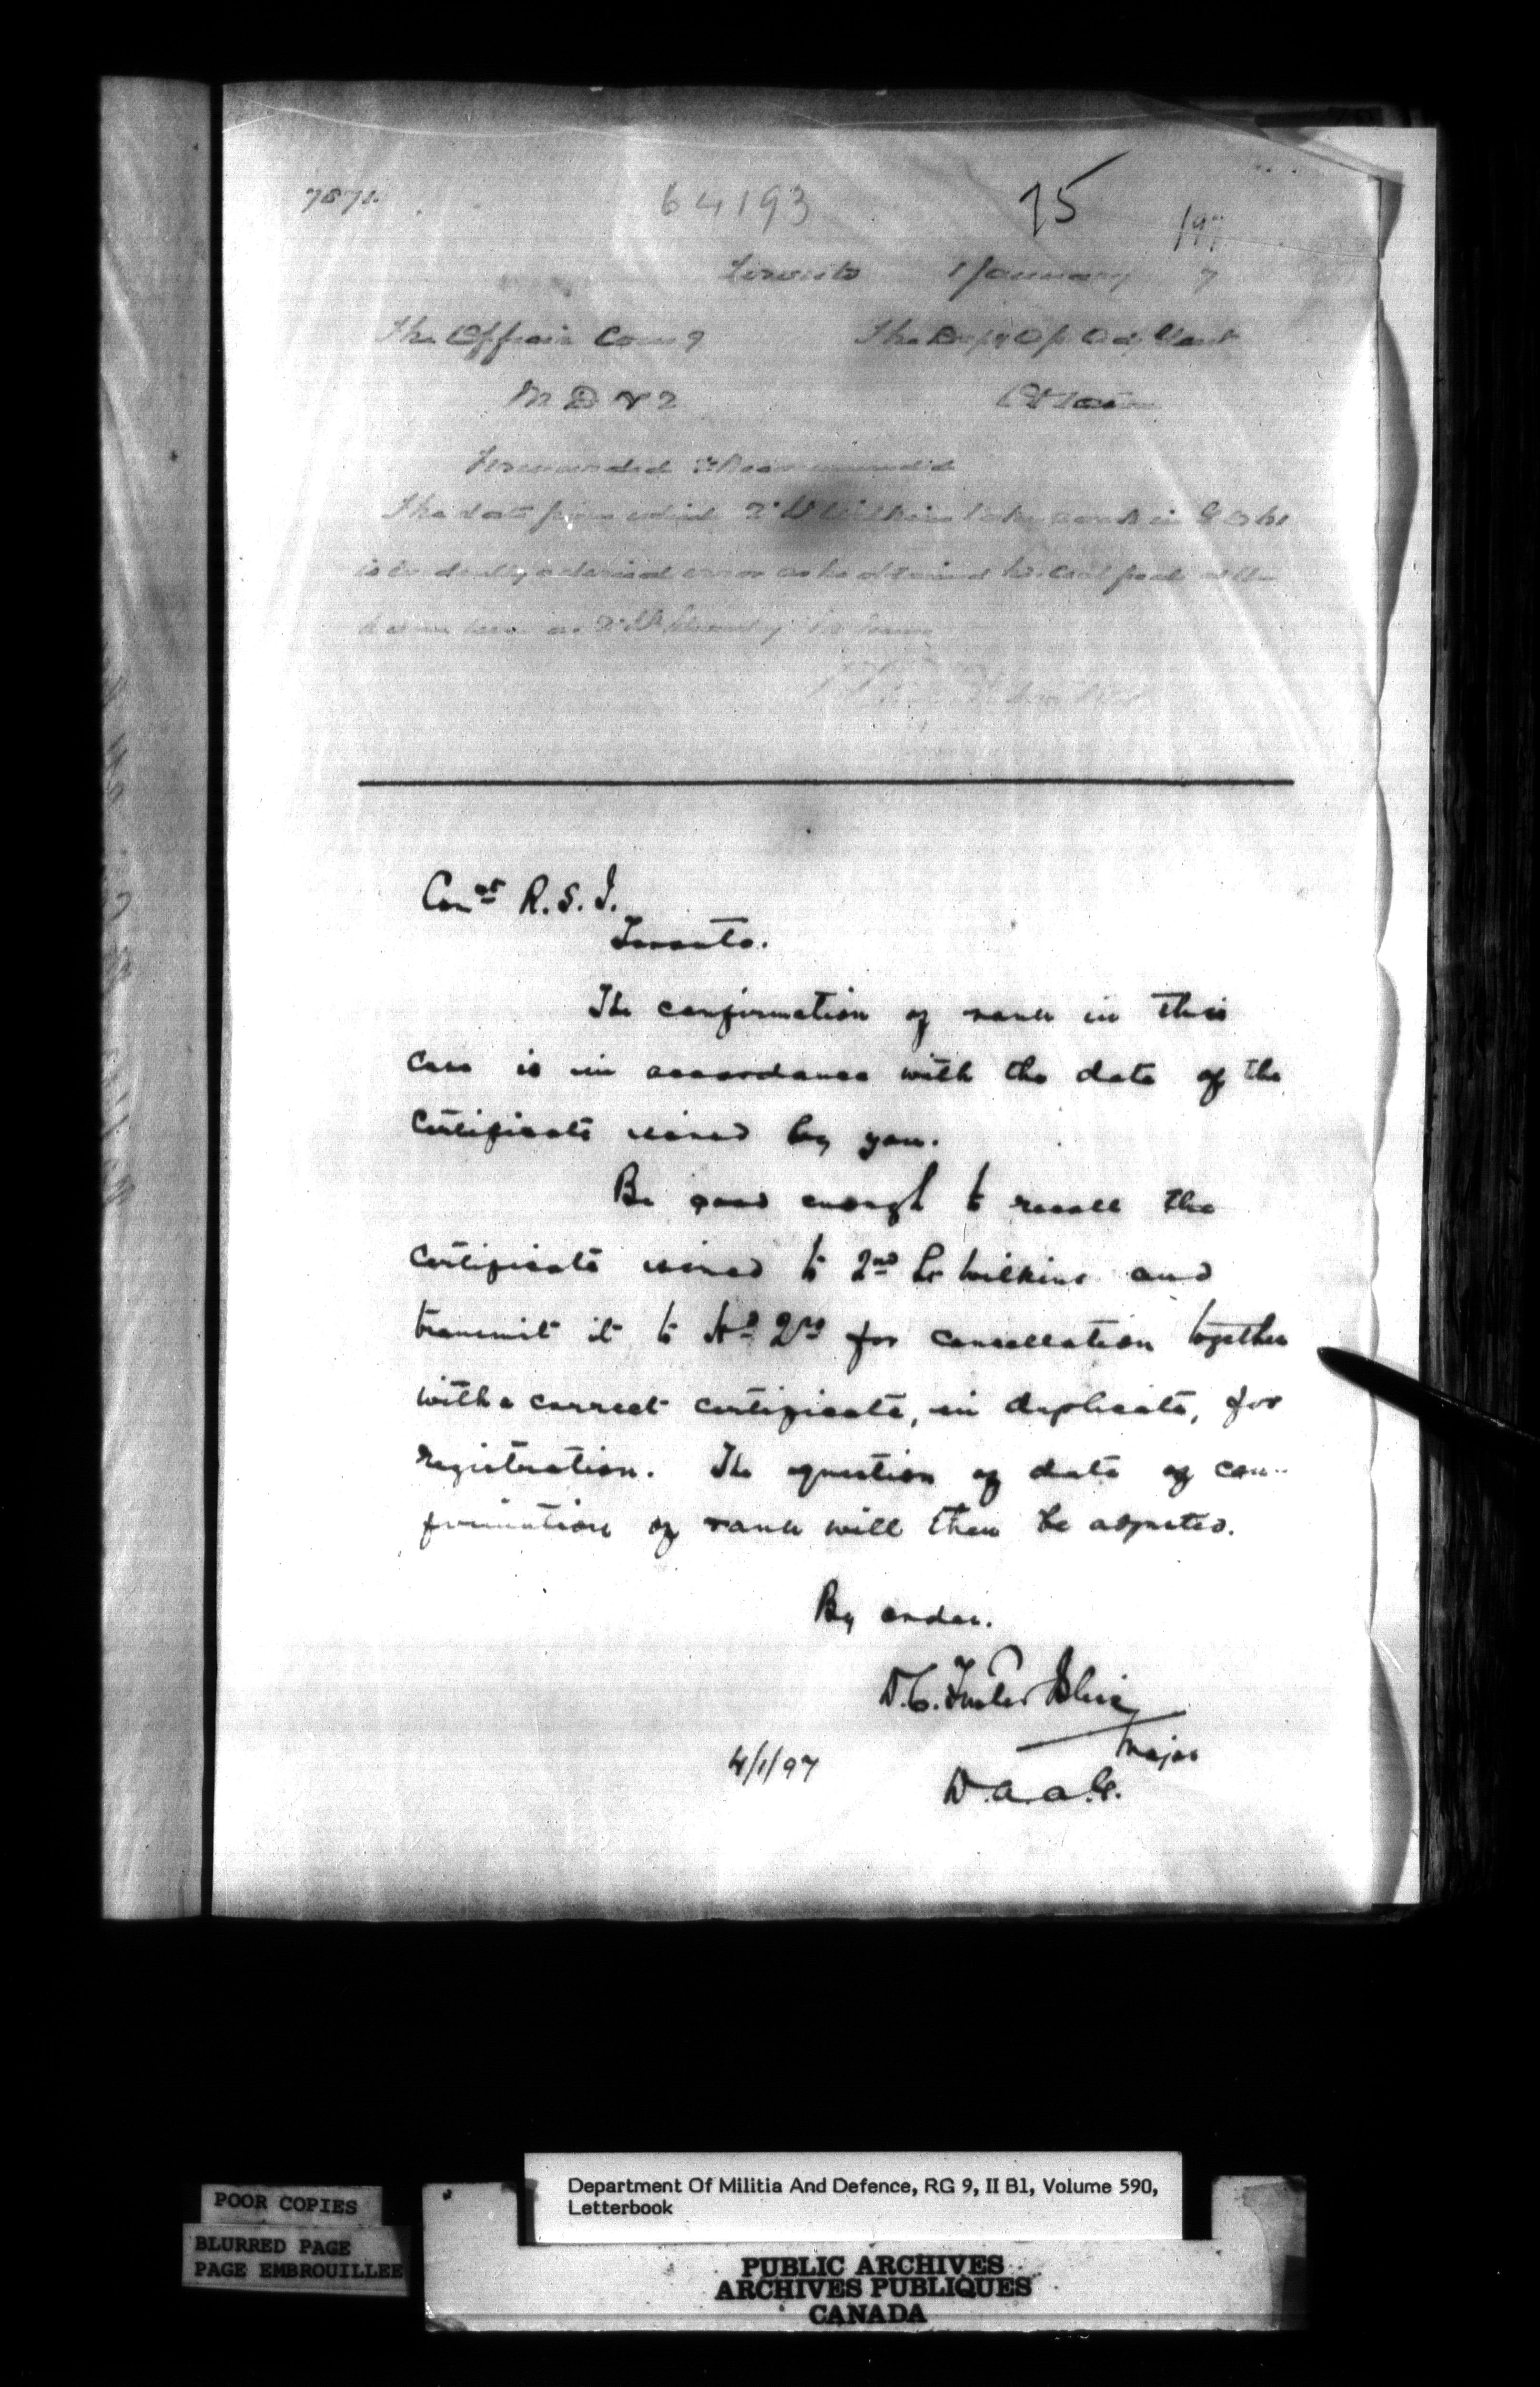 7871.
64193
75
197
Toronto 1 January 7
The Officer Comg The Depy Adjt Genl
M D No 2 Ottawa
Forwarded & Recommended
The date from which 2 Lt Wilkins takes rank in G O 61
is evidently a clerical error as he obtained his
Comdt R. S. I.
Toronto.
The confirmation of rank in this
case is in accordance with the date of the
certificate issued by you.
Be good enough to recall the
certificate issued to 2nd Lt Wilkins and
transmit it to Hd Qrs for cancellation together
with a correct certificate, in duplicate, for
registration. The question of date of con-
firmation of rank will then be adjusted.
By order.
Major
4/1/97
D.A.A.G.
POOR COPIES
BLURRED PAGE
PAGE EMBROUILLEE
Department Of Militia And Defence, RG 9, II B1, Volume 590,
Letterbook
PUBLIC ARCHIVES
ARCHIVES PUBLIQUES
CANADA